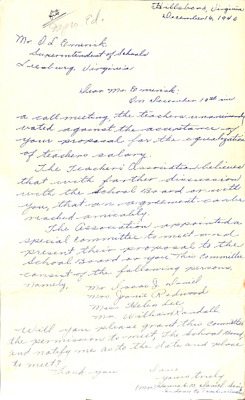 Hillsboro, Virginia
December 16, 1940
Mr. O. L. Emerick
Superintendent of Schools
Leesburg, Virginia
Dear Mr. Emerick:
On December 14th in
a call meeting, the teachers unanimously
voted against the acceptance of
your proposal for the equalization
of teachers salary.
The Teachers Association believes
that with further discussion
with the School Board or with
you, that an agreement can be
reached amicably.
The Association appointed a
special committee to meet and
present their proposal to the
School Board or you. This Committee
consist of the following persons,
Namely,
Will you please grant this committee
the permission to meet the School Board,
and notify me as to the date and place
to meet?
Thank you
Yours truly